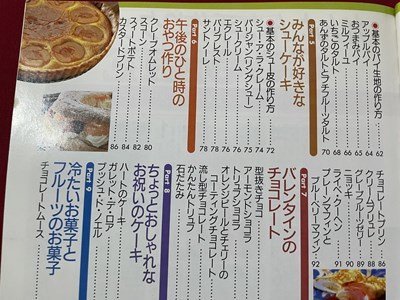 ●基本のパイ生地の作り方……62
アップルパイ……64
おつまみパイ……65
ミルフィーユ……66
いちごのタルト……68
あいずのタルトとプチフルーツタルト……70
Part 5
みんなが好きな
シューケーキ
●基本のシュー皮の作り方……72
シュー・ア・ラ・クレーム……74
パリジャン(リングシュー)……75
シュークリーム……76
エクレール
パリブレスト
サントノーレ
Part 6
午後のひと時の
おやつ作り
クレープオムレット……80
スコーン……82
スイートポテト……84
カスタードプリン……86
チョコレートプリン……86
クリームブリュレ……88
グレープフルーツゼリー……89
ニョッキ……90
パンケーキ……91
プレーンマフィンと
ブルーベリーマフィン……92
Part 7
バレンタインの
チョコレート
型抜きチョコ
アーモンドショコラ
トリュフショコラ
オレンジピールとチェリーの
コーティングチョコレート
流し型チョコレート
かんたんトリュフ
石だたみ
Part 8
ちょっとおしゃれな
お祝いのケーキ
ハートのケーキ
ガレット・デ・ロア
ブッシュ・ド・ノエル
Part 9
冷たいお菓子と
フルーツのお菓子
チョコレートムース